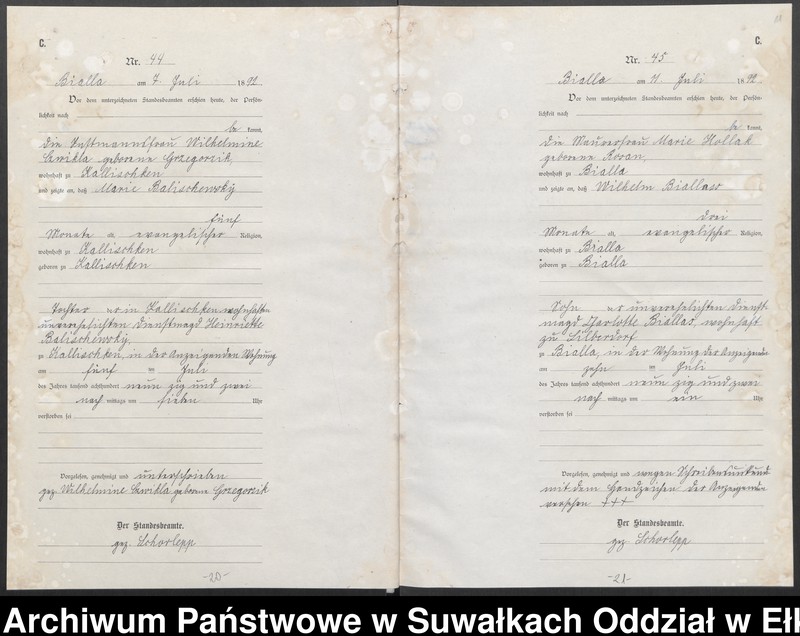 C.
Nr. 44
Bialla am 7. Juli 1892
Vor dem unterzeichneten Standesbeamten erschien heute, der Persön-
lichkeit nach
be kannt,
die Instmannsfrau Wilhelmine
Cwikla geborene Grzegorzik
wohnhaft zu Kallischken
und zeigte an, daß Marie Balischewsky
fünf
Monate alt, evangelischer Religion,
wohnhaft zu Kallischken
geboren zu Kallischken
Tochter der in Kallischken wohnhaften
unverehelichten Dienstmagd Heinriette
Balischewsky,
zu Kallischken, in der Anzeigenden Wohnung
am fünf ten Juli
des Jahres tausend achthundert neun zig und zwei
nach mittags um sieben Uhr
verstorben sei
Vorgelesen, genehmigt und unterschrieben
gez. Wilhelmine Cwikla geborene Grzegorzik
Der Standesbeamte.
gez. Schorlepp
-20-
C.
Nr. 45
Bialla am 11 Juli 1892
Vor dem unterzeichneten Standesbeamten erschien heute, der Persön-
lichkeit nach
be kannt,
die Maurerfrau Marie Hollak
geborene Rovan,
wohnhaft zu Bialla
und zeigte an, daß Wilhelm Biallas
drei
Monate alt, evangelischer Religion,
wohnhaft zu Bialla
geboren zu Bialla
Sohn der unverehelichten Dienst-
magd Charlotte Biallas, wohnhaft
zu Lilberdorf
zu Bialla, in der Wohnung der Anzeigende
am zehn ten Juli
des Jahres tausend achthundert neun zig und zwei
nach mittags um ein Uhr
verstorben sei
Vorgelesen, genehmigt und wegen Schreibensunkund
mit dem Handzeichen der Anzeigende
versehen +++
Der Standesbeamte.
gez Schorlepp
-21-
Archiwum Państwowe w Suwałkach Oddział w Ełk